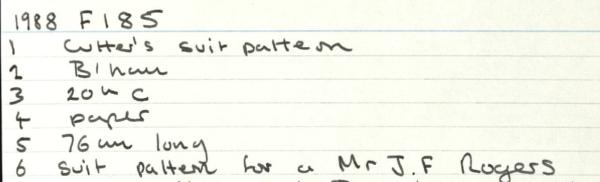 1988 F185
1 Cutter's suit pattern
2 B'ham
3 20th C
4 paper
5 76cm long
6 suit pattern for a Mr J.F Rogers